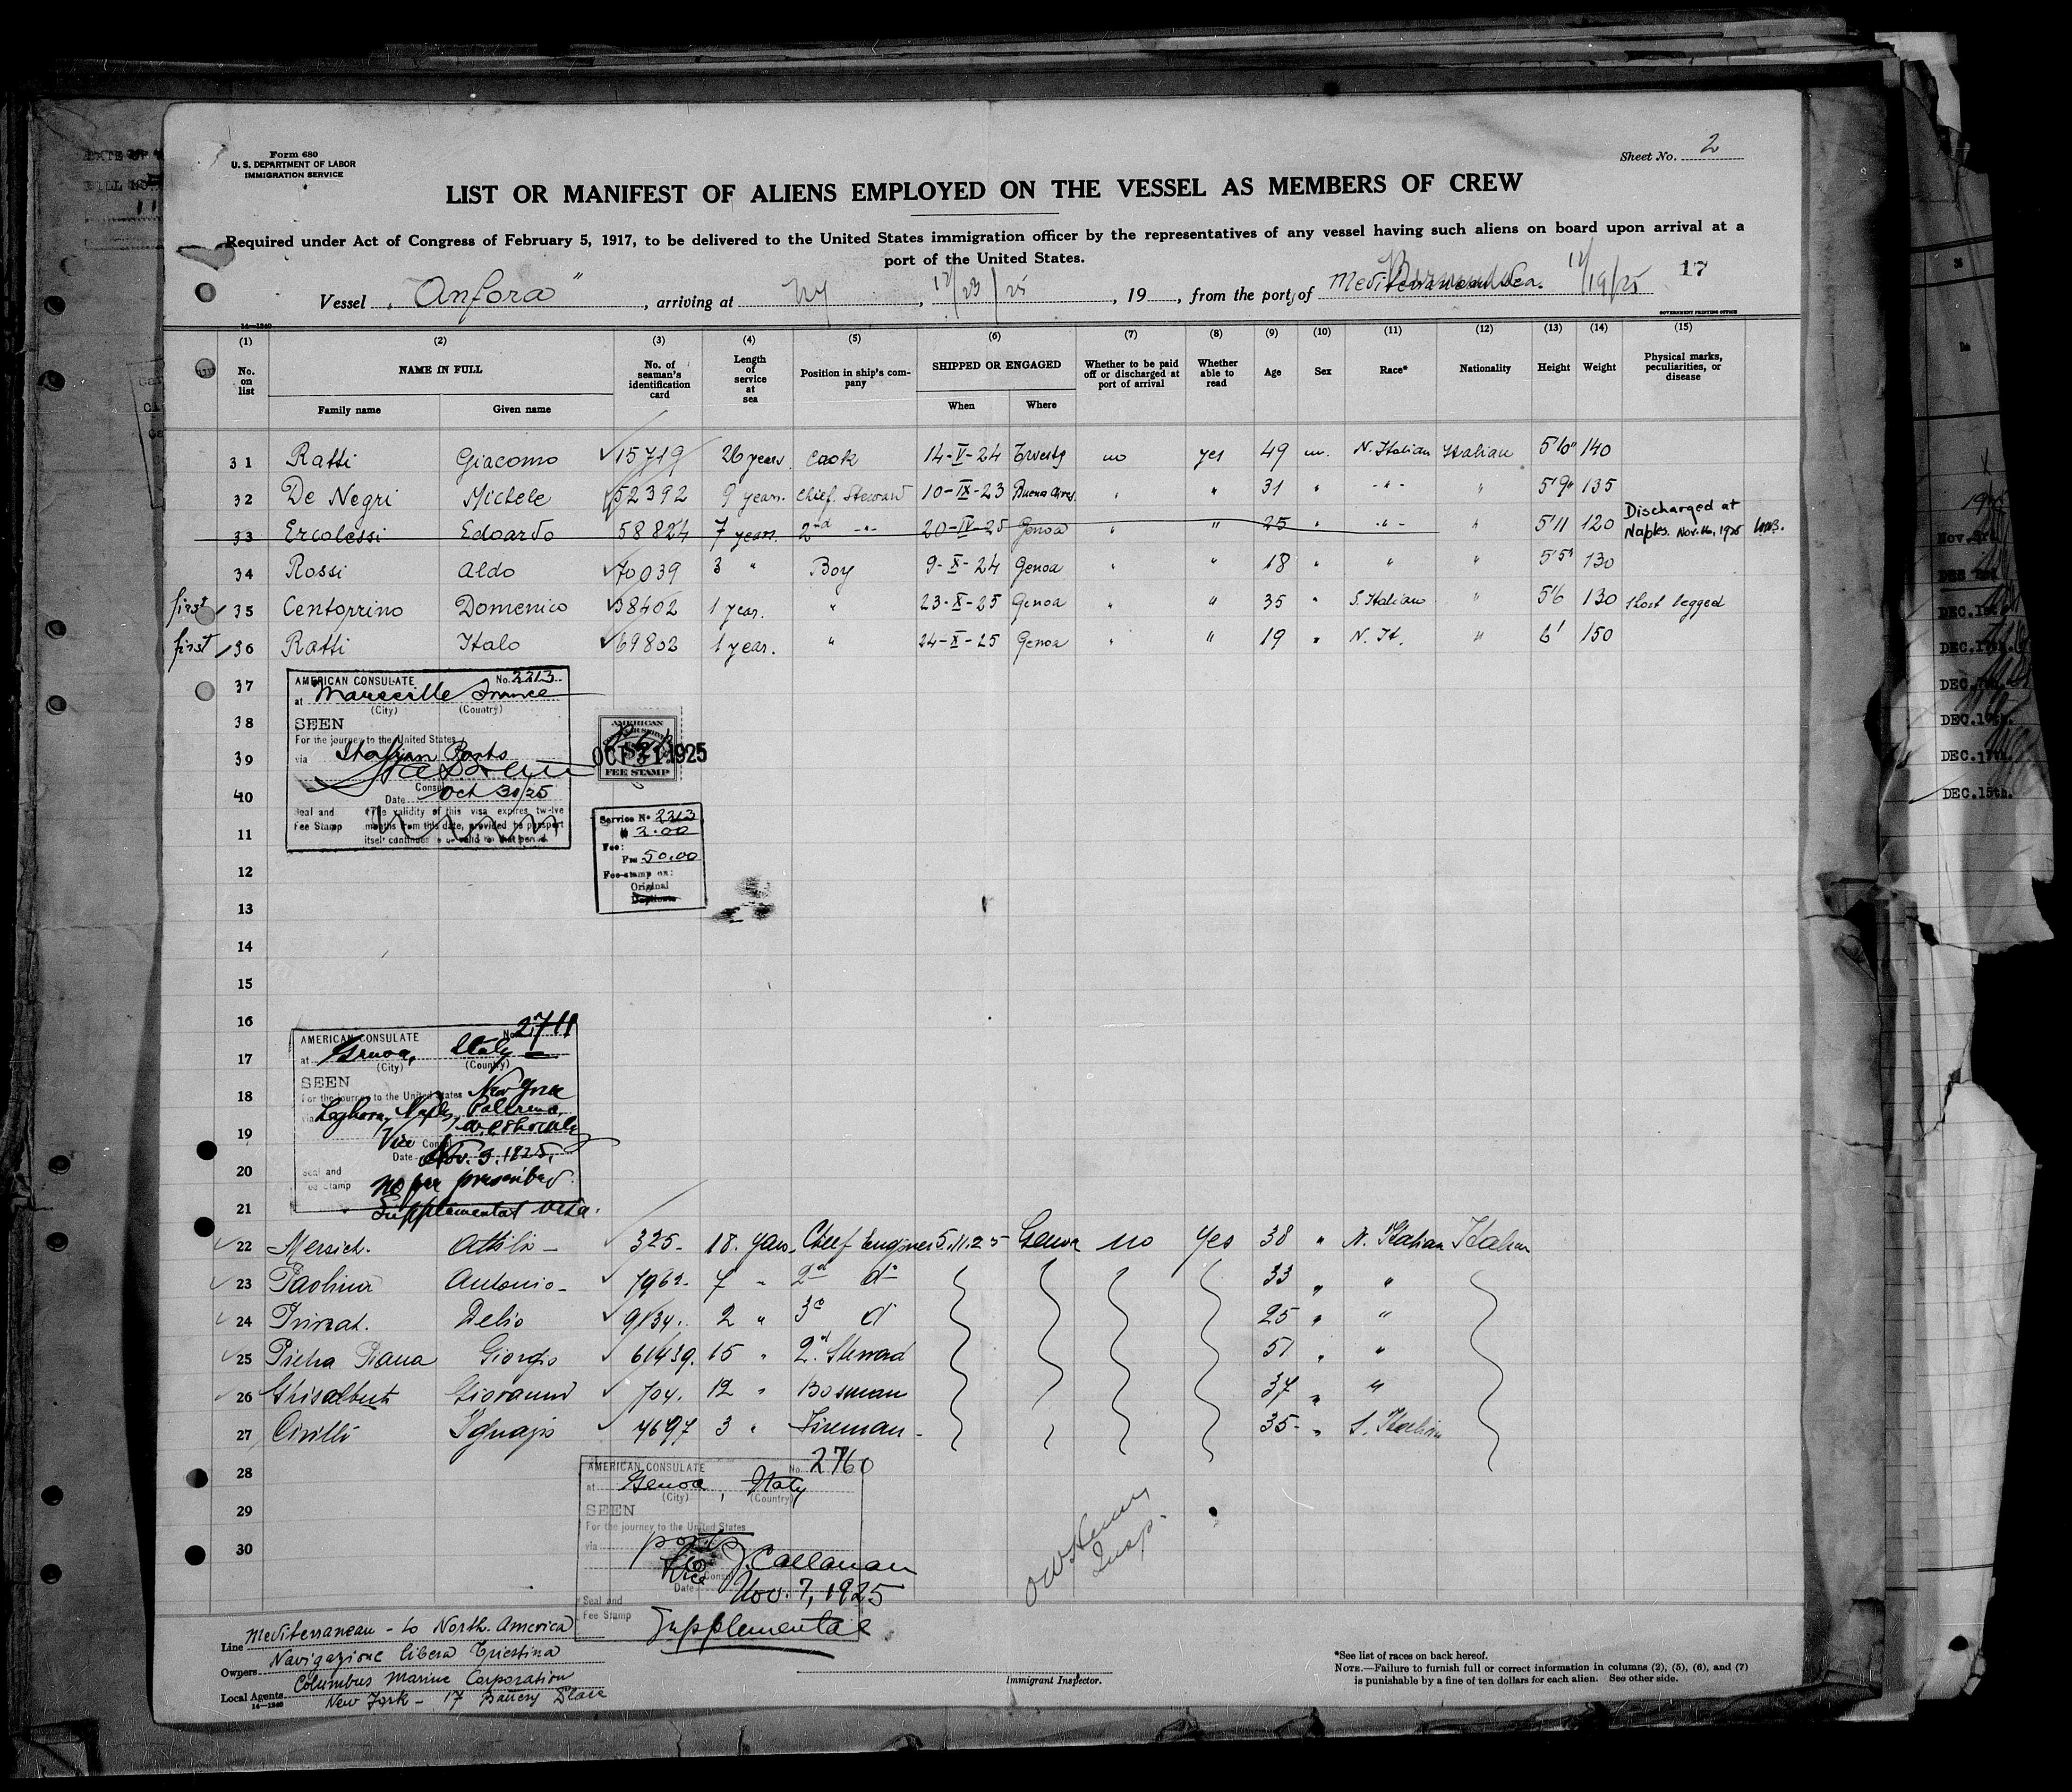 Form 680
U. S. DEPARTMENT OF LABOR
IMMIGRATION SERVICE
Sheet No. 2
LIST OR MANIFEST OF ALIENS EMPLOYED ON THE VESSEL AS MEMBERS OF CREW
Required under Act of Congress of February 5, 1917, to be delivered to the United States immigration officer by the representatives of any vessel having such aliens on board upon arrival at a
port of the United States.
Vessel "Anfora", arriving at NY, 12/23/25, 19, from the port of 12/19/25 17
14—1240
GOVERNMENT PRINTING OFFICE
(1) (2) (3) (4) (5) (6) (7) (8) (9) (10) (11) (12) (13) (14) (15)
No. on list NAME IN FULL No. of seaman's identification card Length of service at sea Position in ship's company SHIPPED OR ENGAGED Whether to be paid off or discharged at port of arrival Whether able to read Age Sex Race* Nationality Height Weight Physical marks, peculiarities, or disease
Family name Given name When Where
31 Ratti Giacomo 15719 26 years. Cook 14-V-24 no yes 49 m. N. Italian Italian 5'10" 140
32 De Negri Michele 52392 9 years. Chief Steward 10-IX-23 Buenos Aires " " 31 " -"- " 5'9" 135
33 Ercolessi Edoardo 58824 7 years. 2nd -"- 20-IV-25 Genoa " " 25 " -"- " 5'11 120 Discharged at Naples. Nov. 16, 1925
34 Rossi Aldo 70039 3 " Boy 9-X-24 Genoa " " 18 " " " 5'5" 130
first 35 Centorrino Domenico 38402 1 year. " 23-X-25 Genoa " " 35 " S. Italian " 5'6 130 Short legged
first 36 Ratti Italo 69802 1 year. " 24-X-25 Genoa " " 19 " N. It. " 6' 150
37
38
39
40
11
12
13
14
15
16
17
18
19
20
21
AMERICAN CONSULATE No. 2213
at Marseille France
(City) (Country)
SEEN
For the journey to the United States
via Italian Ports
Consul
Date Oct 30/25
Seal and Fee Stamp
The validity of this visa expires twelve
months from this date, provided the passport
itself continues to be valid for that period
AMERICAN
OCT 31 1925
FEE STAMP
Service No 2213
$ 2.00
Fee:
Frs 50.00
Fee-stamp on:
Original
Duplicate
AMERICAN CONSULATE No. 2711
at Genoa, Italy
(City) (Country)
SEEN
For the journey to the United States New York
via Leghorn, Naples, Palermo,
Vice Consul
Date Nov. 3. 1925.
Seal and Fee Stamp
No fee prescribed
Supplemental visa.
22 Attilio 325 18 years Chief Engineer 5.11.25 Genoa no Yes 38 " N. Italian Italian
23 Antonio 7962 7 " 2d do 33 " "
24 Delio 9134 2 " 3o d 25 " "
25 Giorgio 61439. 15 " 2nd Steward 51 " "
26 Ghisalberti Giovanni 704. 12 " Bosman 37 " "
27 4697 3 " Fireman 35 " S. Italian
28
29
30
AMERICAN CONSULATE No. 2760
at Genoa, Italy
(City) (Country)
SEEN
For the journey to the United States
via ports
Vice J. Callanan
Consul
Date Nov. 7, 1925
Seal and
Fee Stamp Supplemental
Insp.
Line Mediterranean - to North. America
Owners Navigazione Libera Triestina
Local Agents Columbus Marine Corporation
14—1240 New York - 17 Battery Place
Immigrant Inspector.
*See list of races on back hereof.
NOTE.—Failure to furnish full or correct information in columns (2), (5), (6), and (7)
is punishable by a fine of ten dollars for each alien. See other side.
Nov. 3rd
DEC. 1st
DEC. 17th.
DEC. 7th.
DEC. 17th.
DEC. 17th.
DEC. 15th.